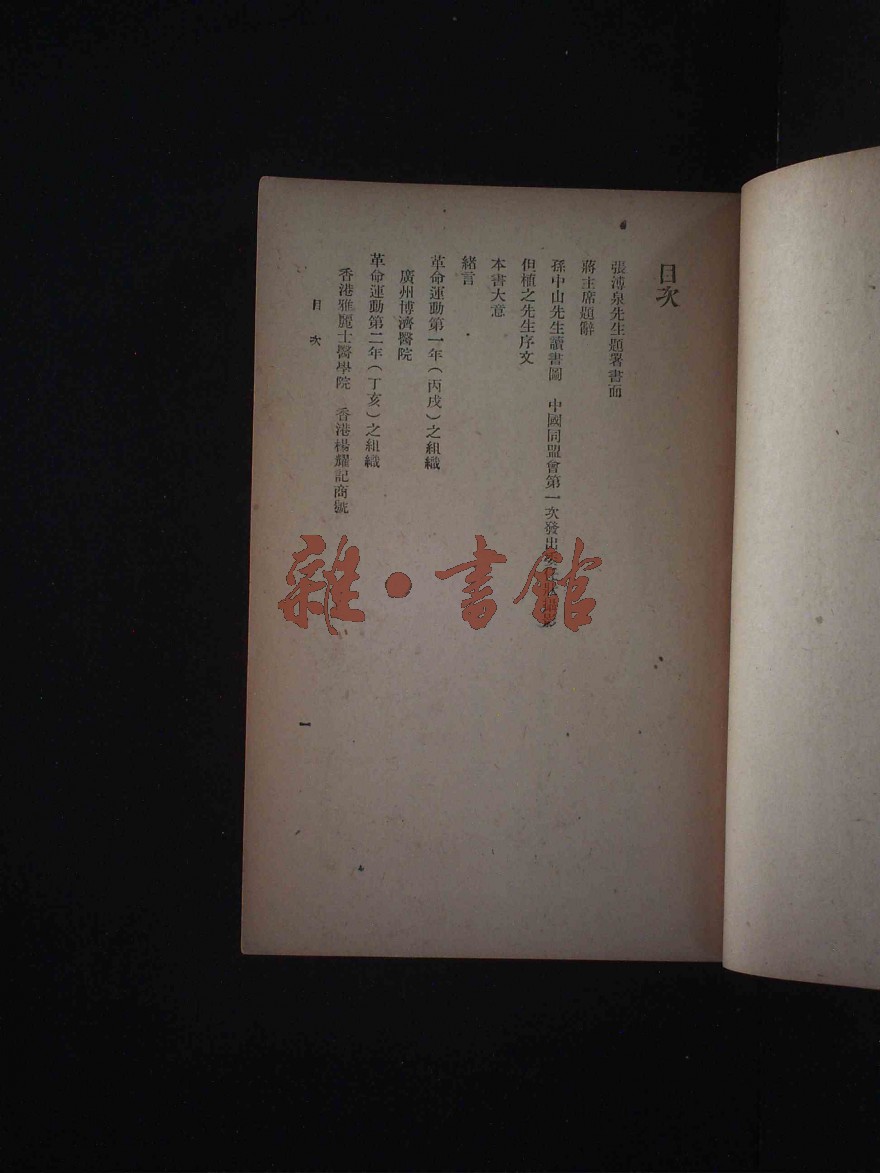 目次
張溥泉先生題署書面
蔣主席題辭
孫中山先生讀書圖　中國同盟會第一次發出
但植之先生序文
本書大意
緒言
革命運動第一年（丙戌）之組織
廣州博濟醫院
革命運動第二年（丁亥）之組織
香港雅麗士醫學院　香港楊耀記商號
目次
一
雜·書館